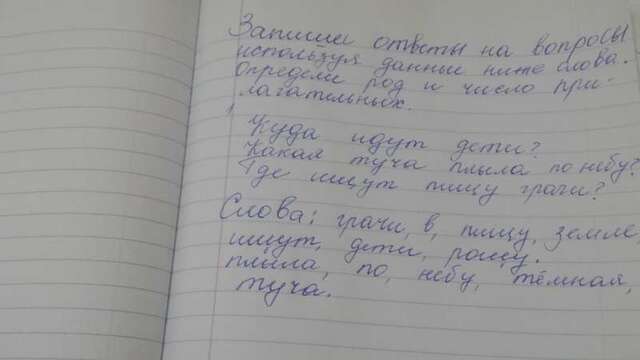 Запиши ответы на вопросы
используя данные ниже слова.
Определи род и число при-
лагательных.
Куда идут дети?
Какая туча плыла по небу?
Где ищут пищу грачи?
Слова: грачи, в, пищу, земле
ищут, дети, рощу.
плыла, по, небу, тёмная,
туча.